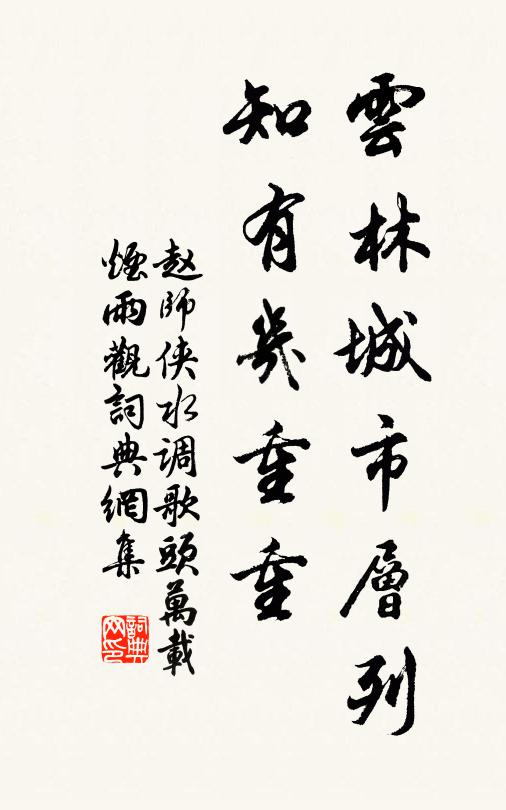 雲林城市層列
知有幾重重
赵師俠水调歌頭萬載
煙雨觀詞典網集
詞典网印